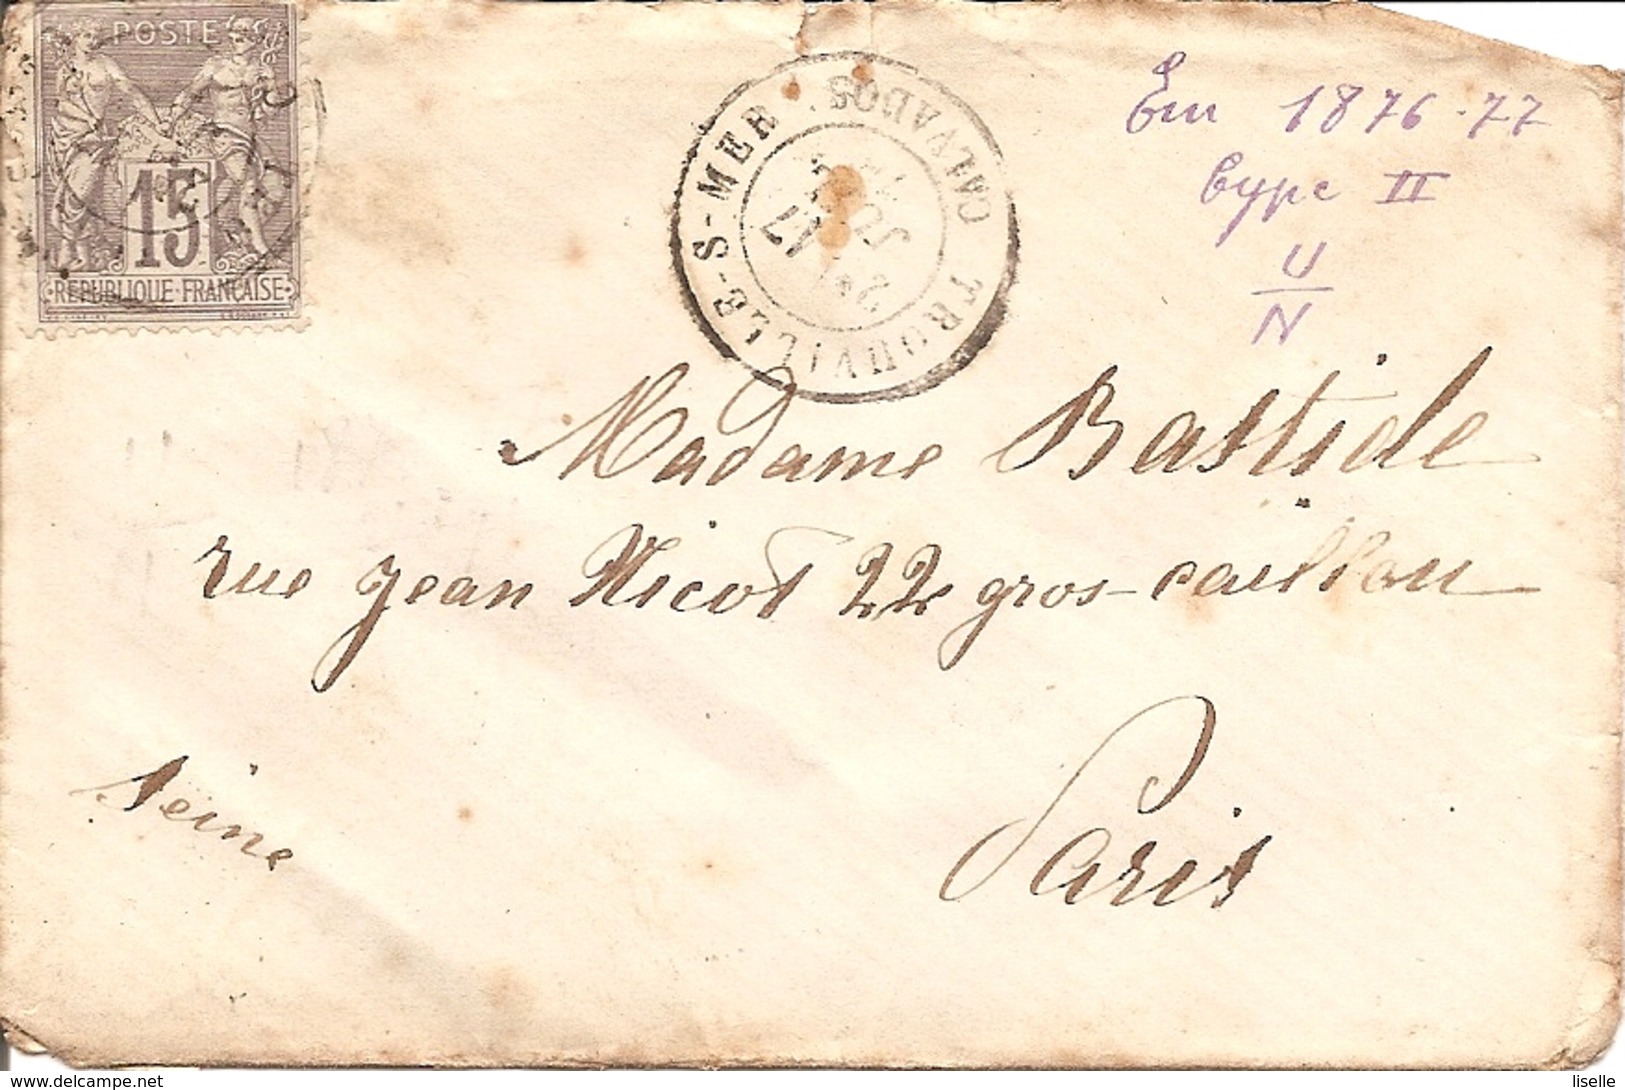 POSTE
15
REPUBLIQUE FRANÇAISE
TROUVILLE-S-MER
CALVADOS
Em 1876-77
type II
U
N
Madame Bastide
rue Jean Nicot 22 gros-caillou
Paris
Seine
© www.delcampe.net
liselle